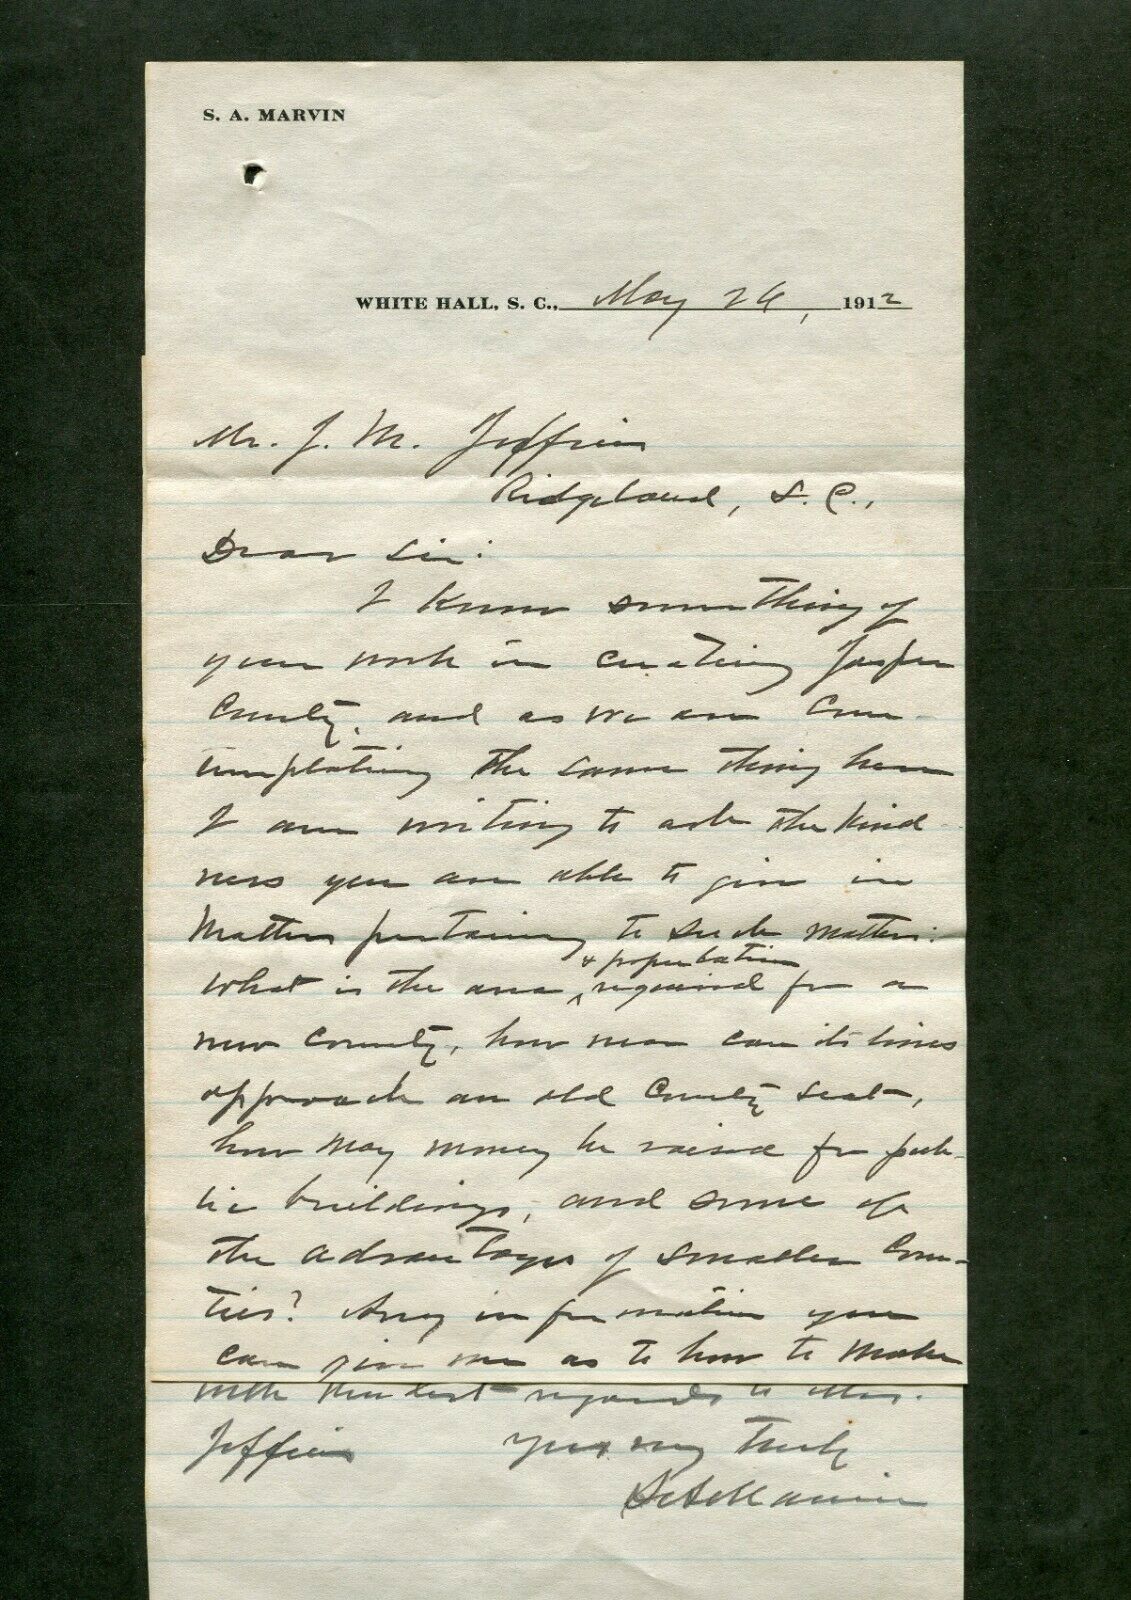 S. A. MARVIN
WHITE HALL, S. C., May 24, 1912
Mr. J. M. Jeffries
Ridgeland, S. C.,
Dear Sir:
I know something of
your work in creating Jasper
County, and as we are con-
templating the same thing here
I am writing to ask the kind
ness you are able to give in
matters pertaining to such matters:
& population
What is the area ^ required for a
new County, how near can its lines
approach an old County seat,
how may money be raised for pub-
lic buildings, and some of
the advantages of smaller Coun-
ties? Any information you
can give me as to how to make
with kindest regards to Mrs.
Jeffries Yours very truly
S. A. Marvin